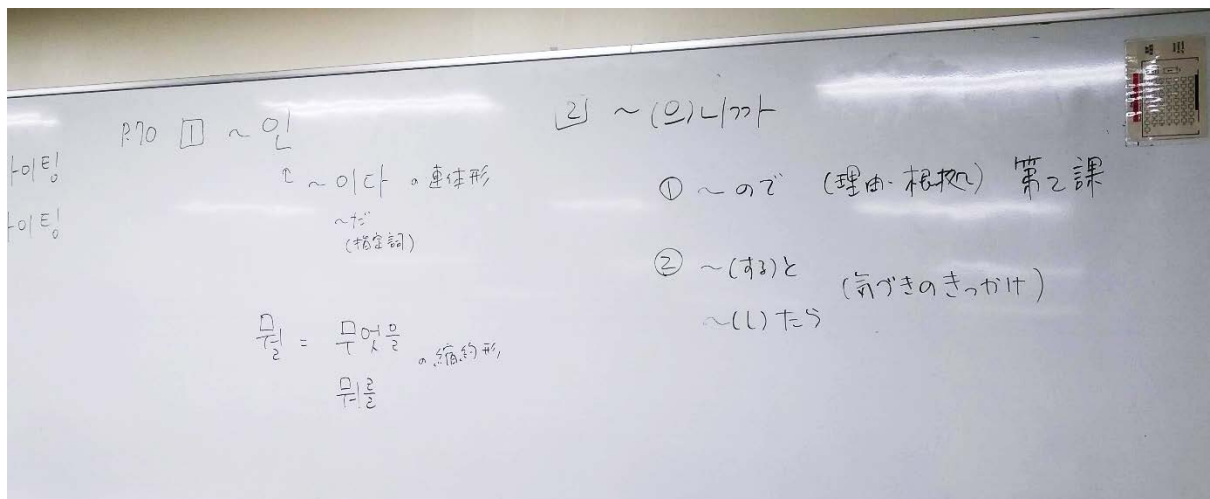 아이팅
아이팅
P.70 1 ~인
↑ ~이다 の連体形
~だ
(指定詞)
뭘 = 무엇을 の縮約形
뭐를
2 ~(으)니까
① ~ので (理由・根拠) 第2課
② ~(する)と (気づきのきっかけ)
~(し)たら